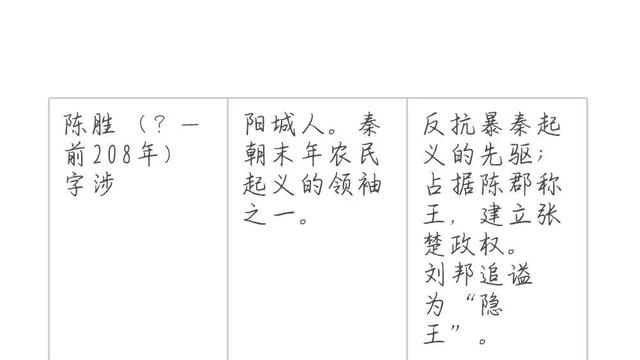 陈胜（？—
前208年）
字涉
阳城人。秦
朝末年农民
起义的领袖
之一。
反抗暴秦起
义的先驱；
占据陈郡称
王，建立张
楚政权。
刘邦追谥
为“隐
王”。